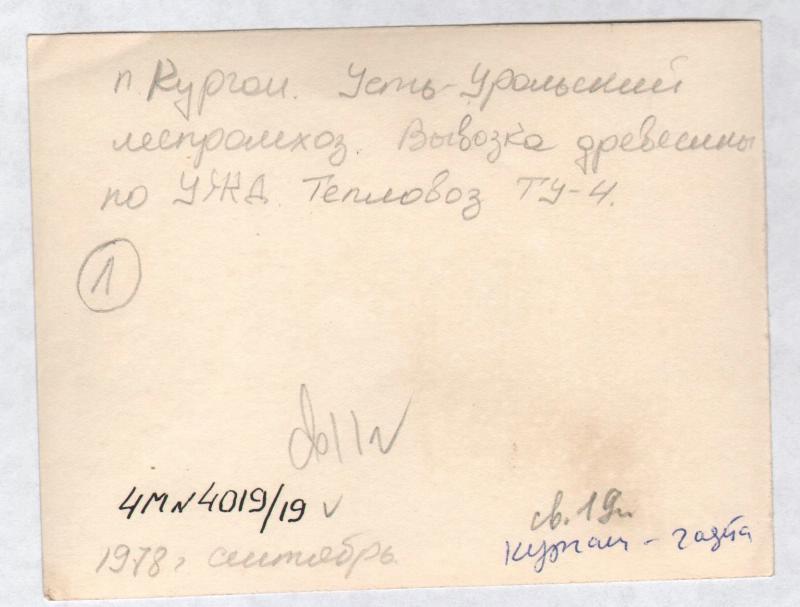 п. Курган. Усть-Уральский
леспромхоз. Вывозка древесины
по УЖД. Тепловоз ТУ-4.
1
ЧМ N 4019/19 v
1978 г сентябрь.
Курган -